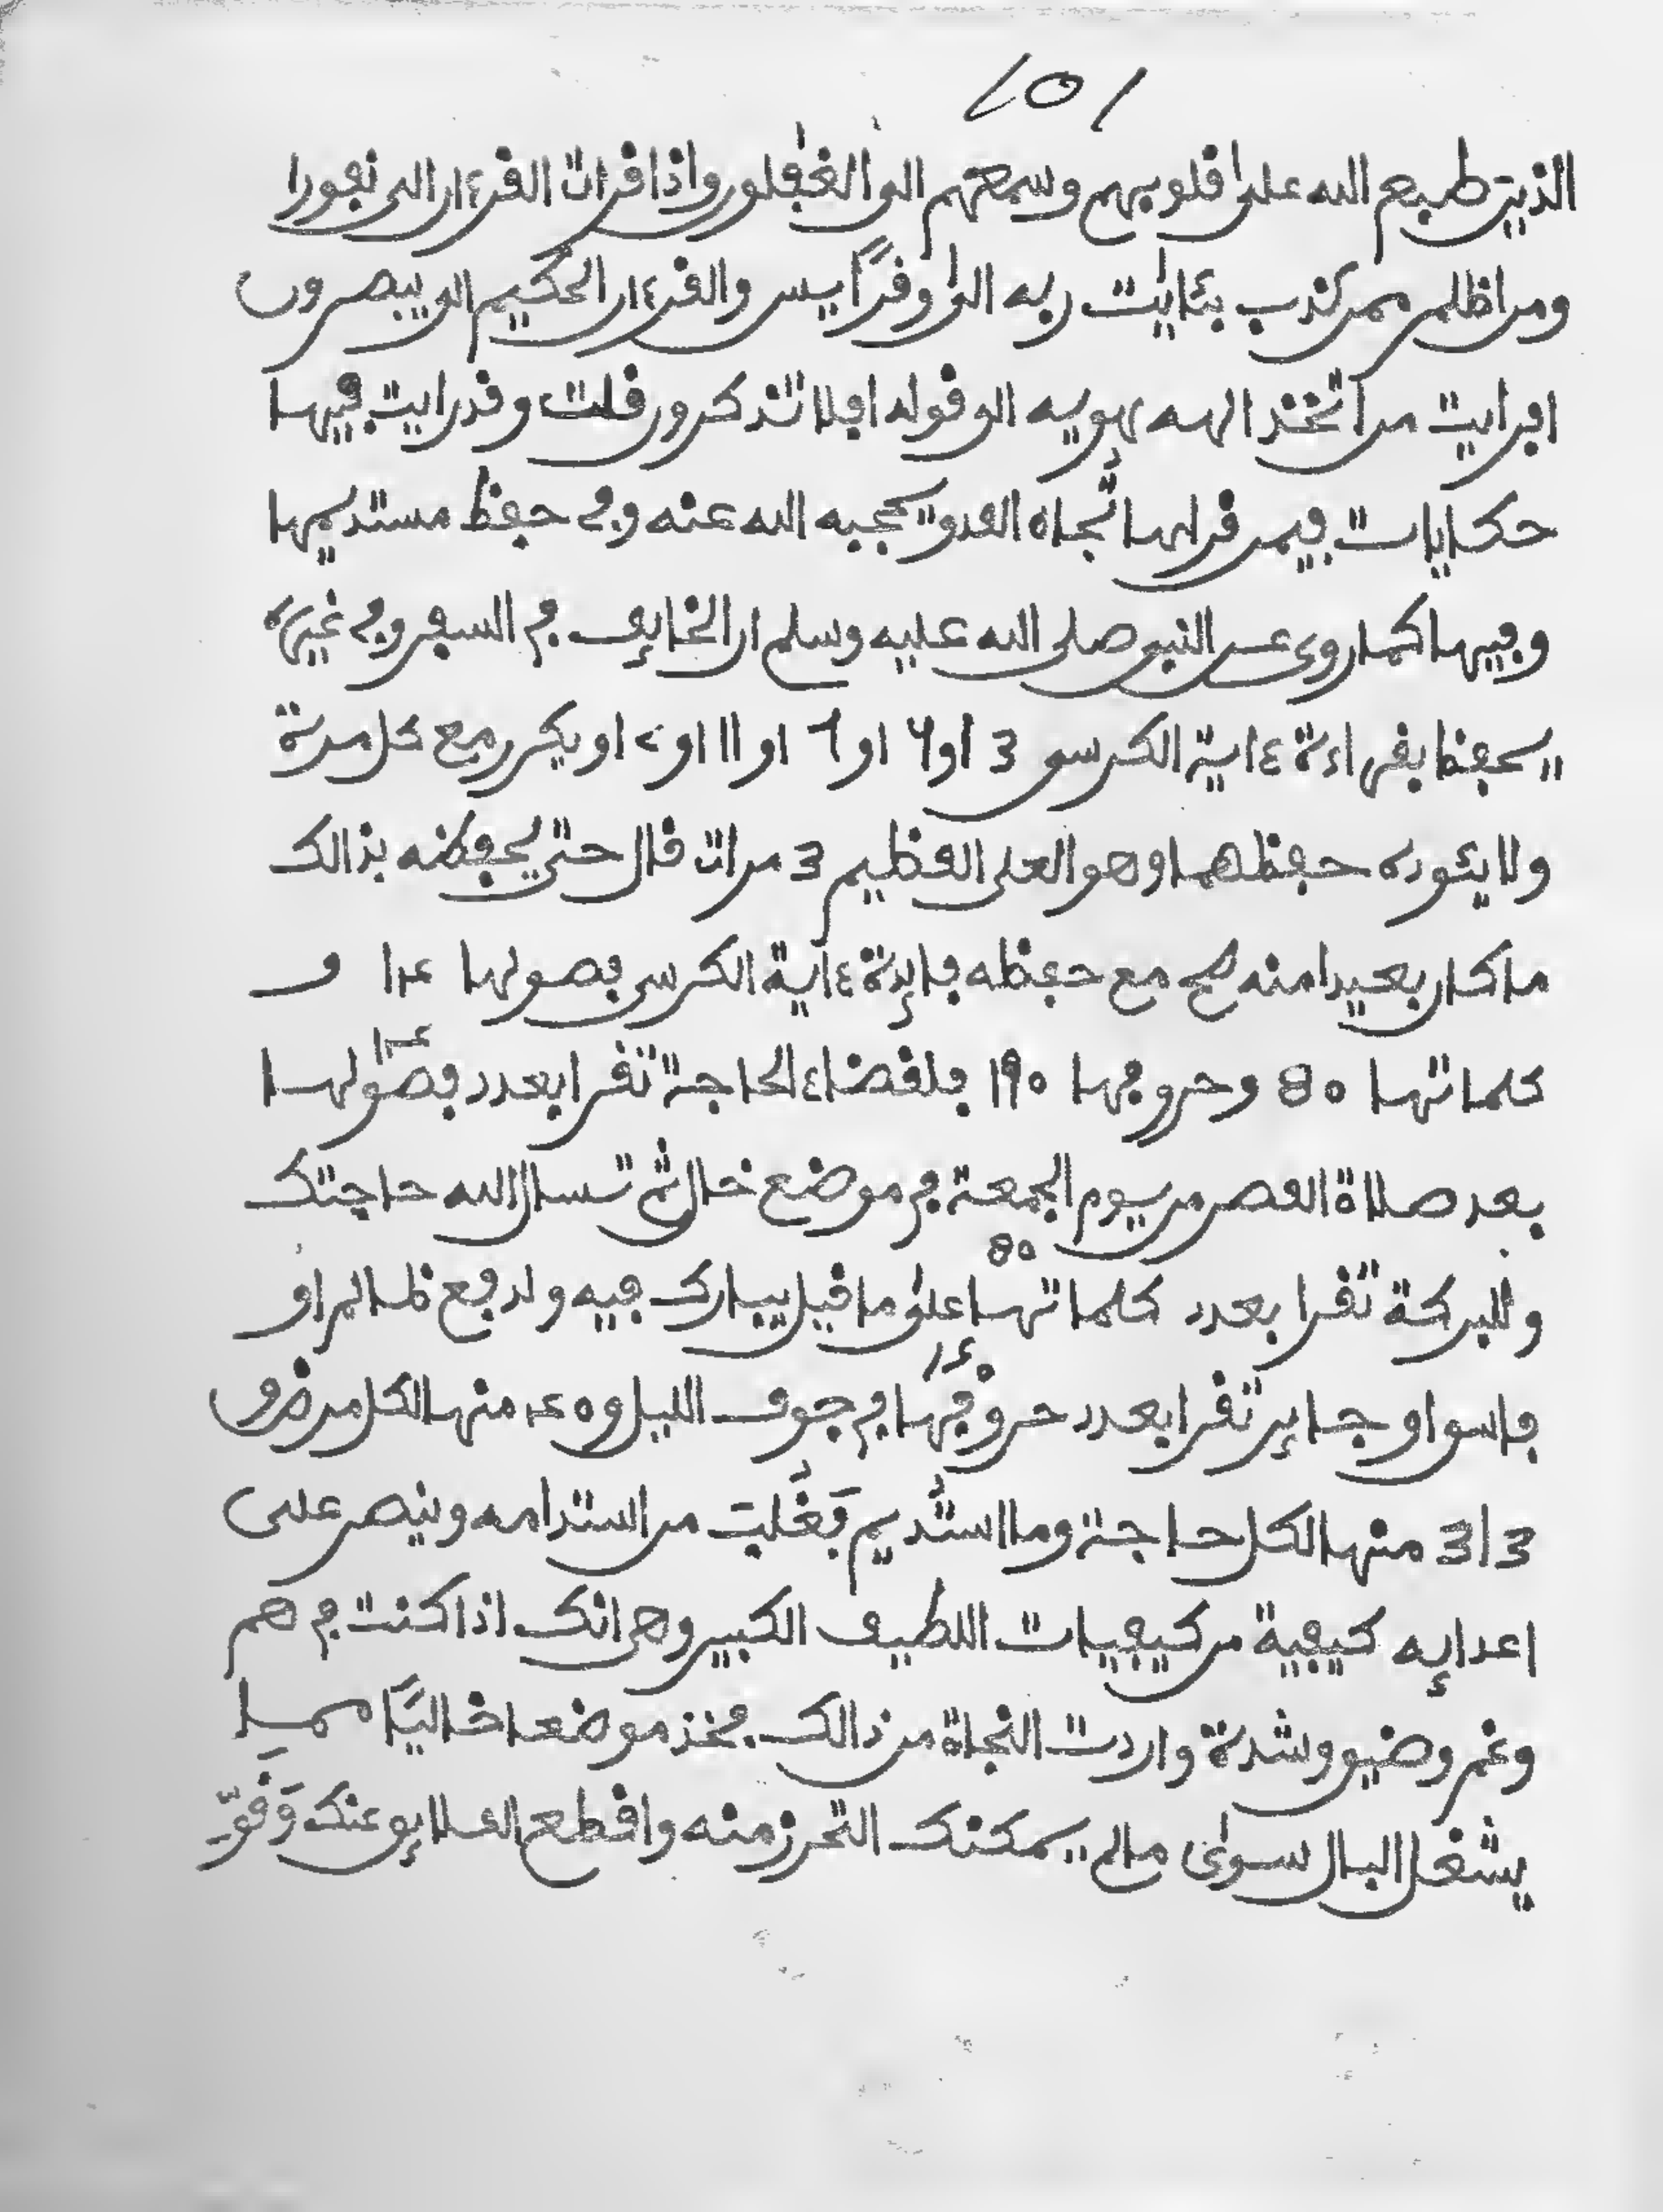 ١٥٧
الذين طبع الله على قلوبهم وسمعهم الى الغفلون واذا قرات القرءان الى نفورا
ومن اظلم ممن كذب بئايت ربه الى وقرا يس والقرءان الحكيم الى يبصرون
افرايت من اتخذ الهه هويه الى قوله افلا تذكرون قلت وقد رايت فيها
حكايات فيمن قراها تجاه العدو يحجبه الله عنه وفى حفظ مستديمها
وفيها كما روى عن النبى صلى الله عليه وسلم ان الخايف فى السفر وفى غيره
يحفظ بقراءة ءاية الكرسى 3 او او او 11 او او يكرر مع كل مرة
ولا يئوده حفظهما وهو العلى العظيم 3 مرات قال حتى يحفظه بذالك
ما كان بعيدا منه صح مع حفظه فايدة ءاية الكرسى فصولها و
كلماتها 80 وحروفها 190 فلقضاء الحاجة تقرا بعدد فصولها
بعد صلاة العصر من يوم الجمعة فى موضع خال ثم تسال الله حاجتك
وللبركة تقرا بعدد كلماتها 80 على ما قيل يبارك فيه ولدفع ظالم او
فاسق او جاير تقرا بعدد حروفها فى جوف الليل و منها لكل مرض و
313 منها لكل حاجة وما استديم فغلب من استدامه وينصر على
اعدايه كيفية من كيفيات اللطيف الكبير وهى انك اذا كنت فى هم
وغم وضيق وشدة واردت النجاة من ذالك فخذ موضعا خاليا مما
يشغل البال سوى مالم يمكنك التحرز منه واقطع العلايق عنك وفو